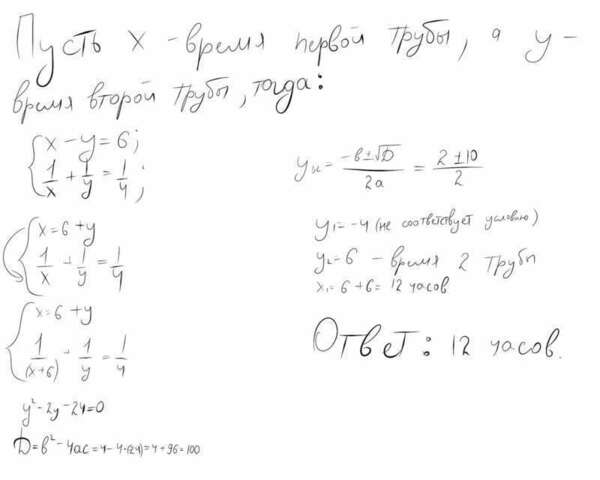 Пусть x - время первой трубы, а y -
время второй трубы, тогда:
{x - y = 6;
1/x + 1/y = 1/4;
{x = 6 + y
1/x + 1/y = 1/4
{x = 6 + y
1/(x+6) - 1/y = 1/4
y² - 2y - 24 = 0
D = b² - 4ac = 4 - 4·(24) = 4 + 96 = 100
y½ = -b ± √D / 2a = 2 ± 10 / 2
y₁ = -4 (не соответствует условию)
y₂ = 6 - время 2 трубы
x₁ = 6 + 6 = 12 часов
Ответ: 12 часов.